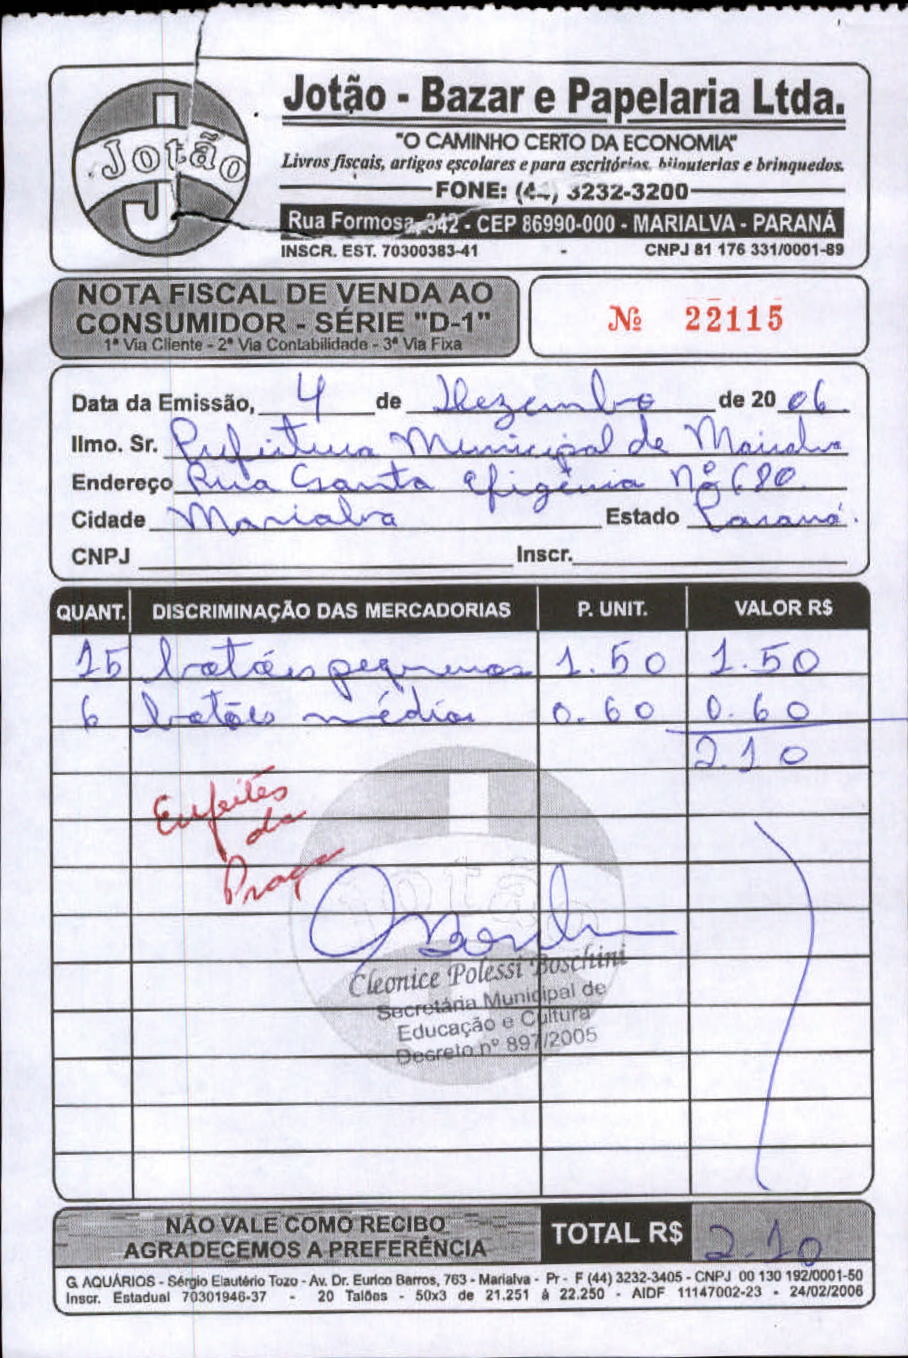 Jotão
Jotão - Bazar e Papelaria Ltda.
"O CAMINHO CERTO DA ECONOMIA"
Livros fiscais, artigos escolares e para escritórios, bijouterias e brinquedos.
FONE: (44) 3232-3200
Rua Formosa, 342 - CEP 86990-000 - MARIALVA - PARANÁ
INSCR. EST. 70300383-41 - CNPJ 81 176 331/0001-89
NOTA FISCAL DE VENDA AO
CONSUMIDOR - SÉRIE "D-1"
1ª Via Cliente - 2ª Via Contabilidade - 3ª Via Fixa
Nº 22115
Data da Emissão, 4 de Dezembro de 20 06
Ilmo. Sr. Prefeitura Municipal de Marialva
Endereço Rua Santa Efigênia Nº 680
Cidade Marialva Estado Paraná.
CNPJ Inscr.
QUANT. DISCRIMINAÇÃO DAS MERCADORIAS P. UNIT. VALOR R$
15 botões pequenos 1.50 1.50
6 botões médios 0.60 0.60
2.10
Enfeites
da
Praça
Jotão
Cleonice Polessi Boschini
Secretária Municipal de
Educação e Cultura
Decreto nº 897/2005
NÃO VALE COMO RECIBO
AGRADECEMOS A PREFERÊNCIA
TOTAL R$ 2.10
G. AQUÁRIOS - Sérgio Elautério Tozo - Av. Dr. Eurico Barros, 763 - Marialva - Pr - F (44) 3232-3405 - CNPJ 00 130 192/0001-50
Inscr. Estadual 70301946-37 - 20 Talões - 50x3 de 21.251 à 22.250 - AIDF 11147002-23 - 24/02/2006